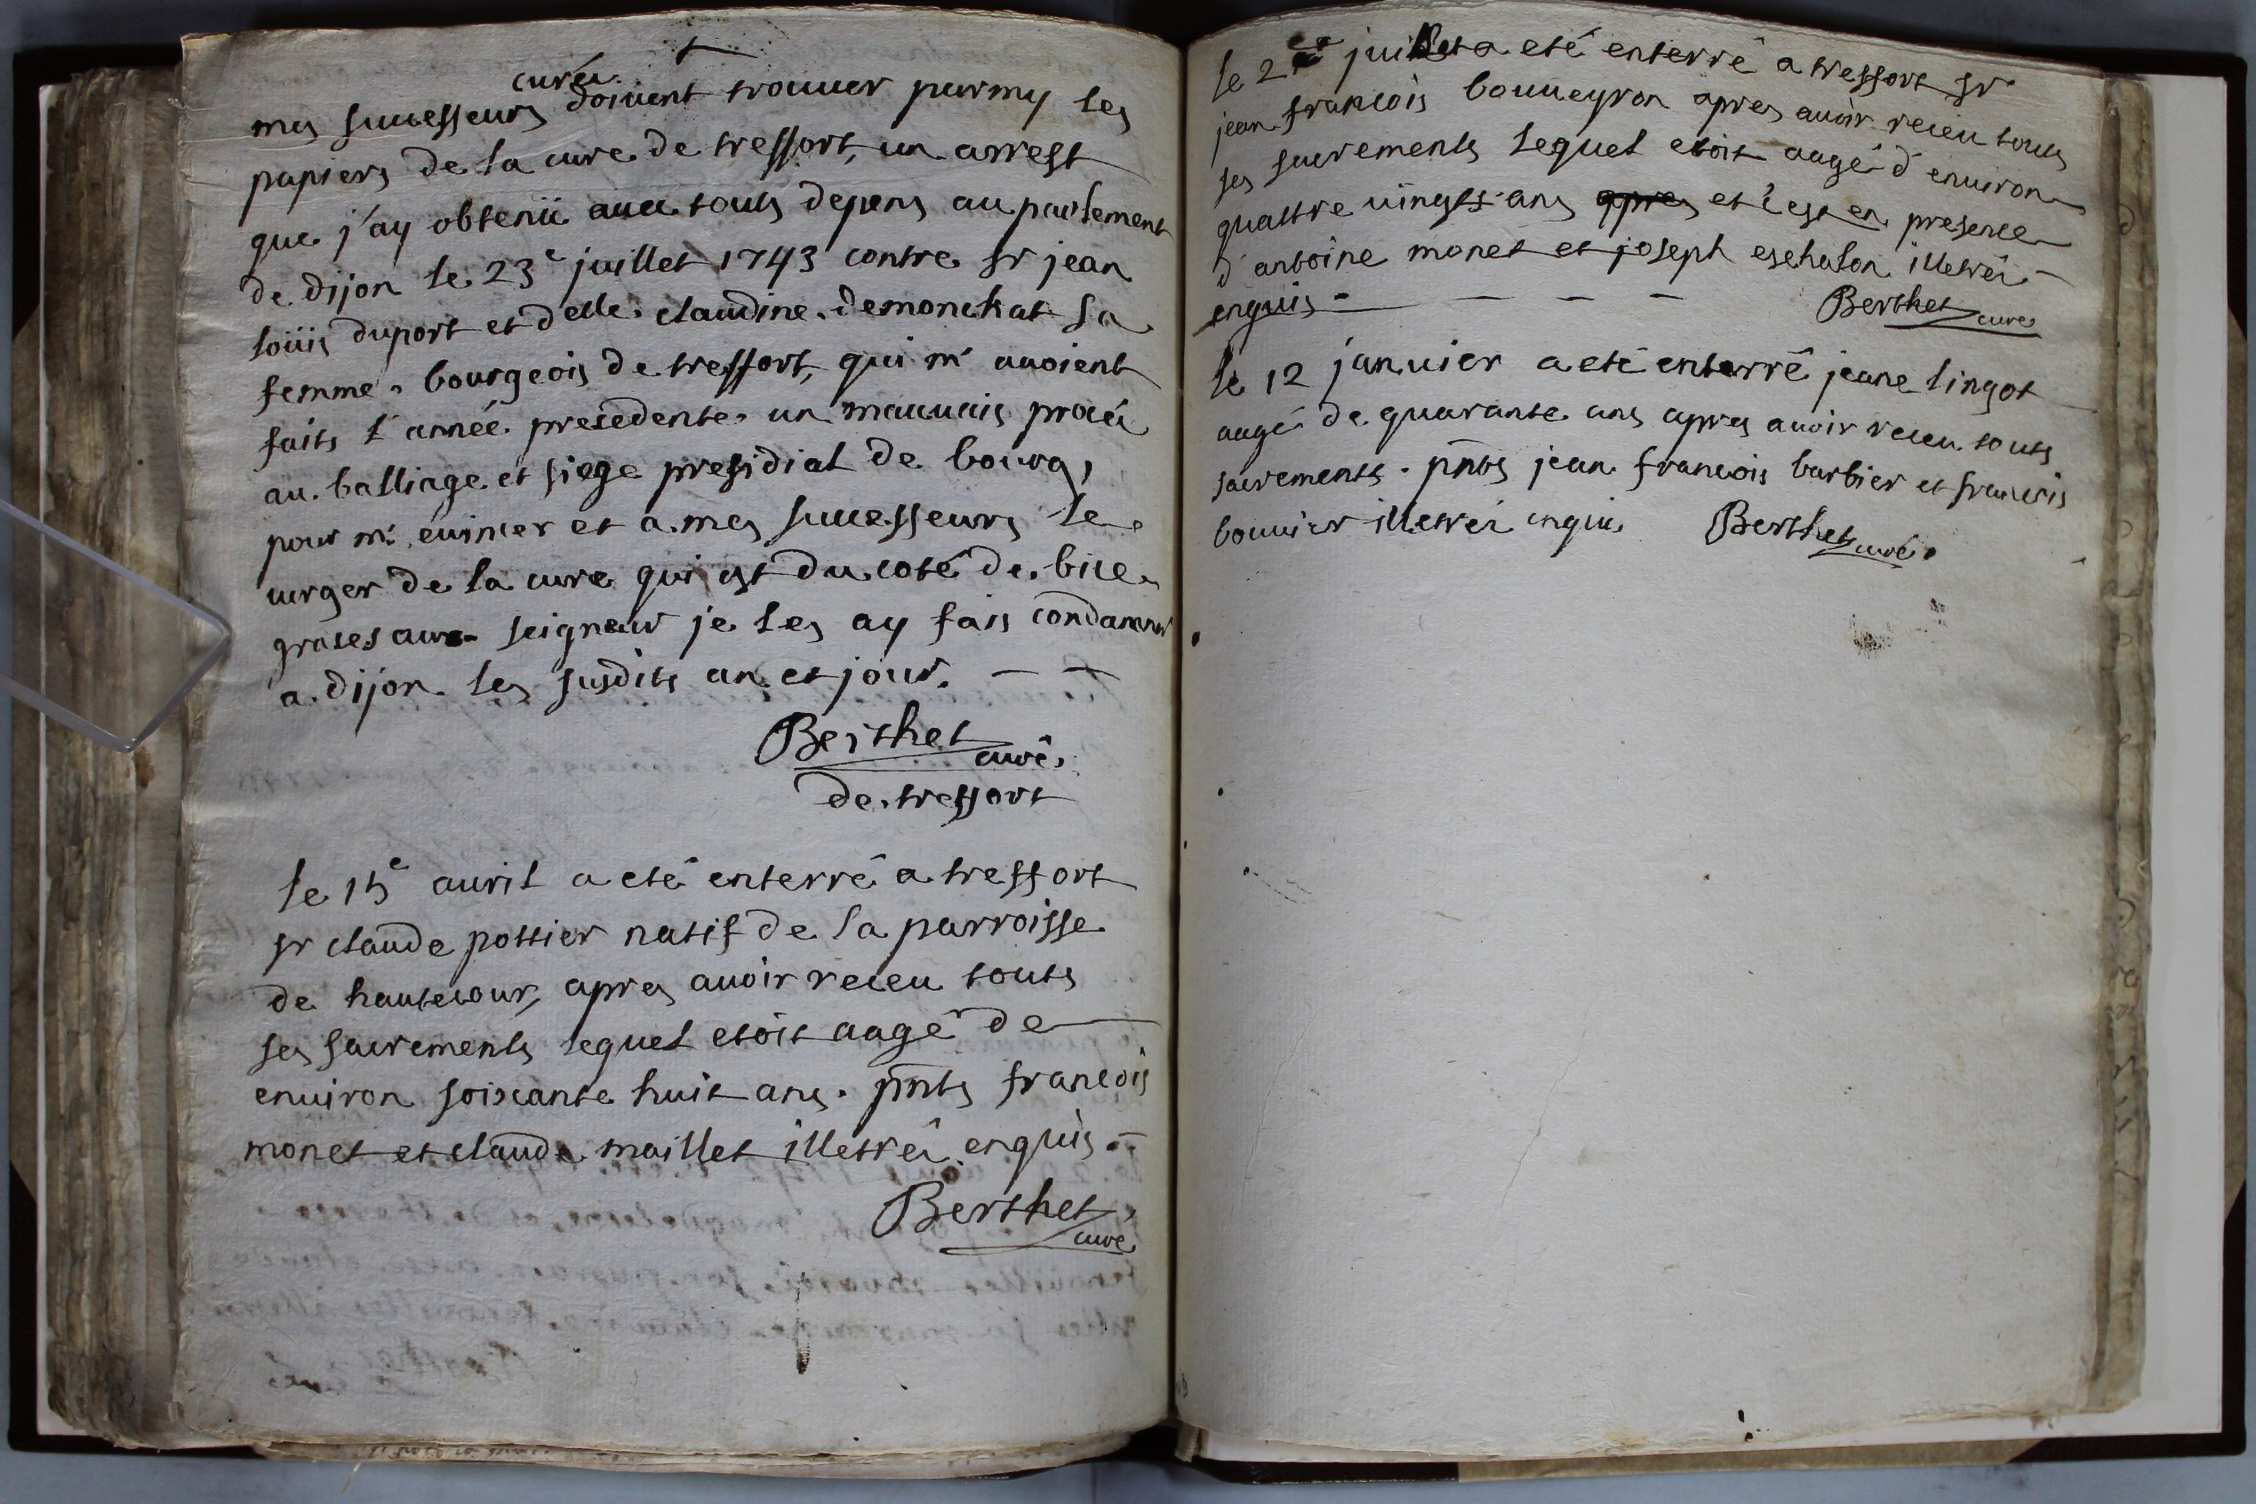 curés
mes successeurs doivent trouver parmy les
papiers de la cure de treffort, un arrest
que j'ay obtenü avec touts depens au parlement
de dijon le 23e juillet 1743 contre sr jean
loüis duport et delle. claudine. demonchat sa
femme, bourgeois de treffort, qui m' avoient
faits l'année precedente, un mauvais procés
au balliage et siege presidial de bourg,
pour m' evincer et a mes successeurs le
verger de la cure qui est du coté de. bise
graces au seigneur je les ay fais condamner
a dijon les susdits an et jour. — —
Berthet curé.
de treffort
le 15e avril a eté enterré a treffort
sr claude pottier natif de la parroisse
de hautecour, apres avoir receu touts
ses sacrements lequel etoit aagé de
environ soixante huit ans. pnts francois
monet et claude maillet illetrés enquis. —
Berthet,
curé
le 2 juillet a eté enterré a treffort sr
jean francois bouveyron apres avoir receu touts
ses sacrements lequel etoit aagé d'environ
quattre vingts ans apres et c'est en presence
d'antoine monet et joseph eschalon illetrés
enquis — — — —
Berthet curé
le 12 janvier a eté enterré jeane lingot
aagé de quarante ans apres avoir receu touts
sacrements. pnts jean francois barbier et francois
bouvier illetrés enquis Berthet curé.